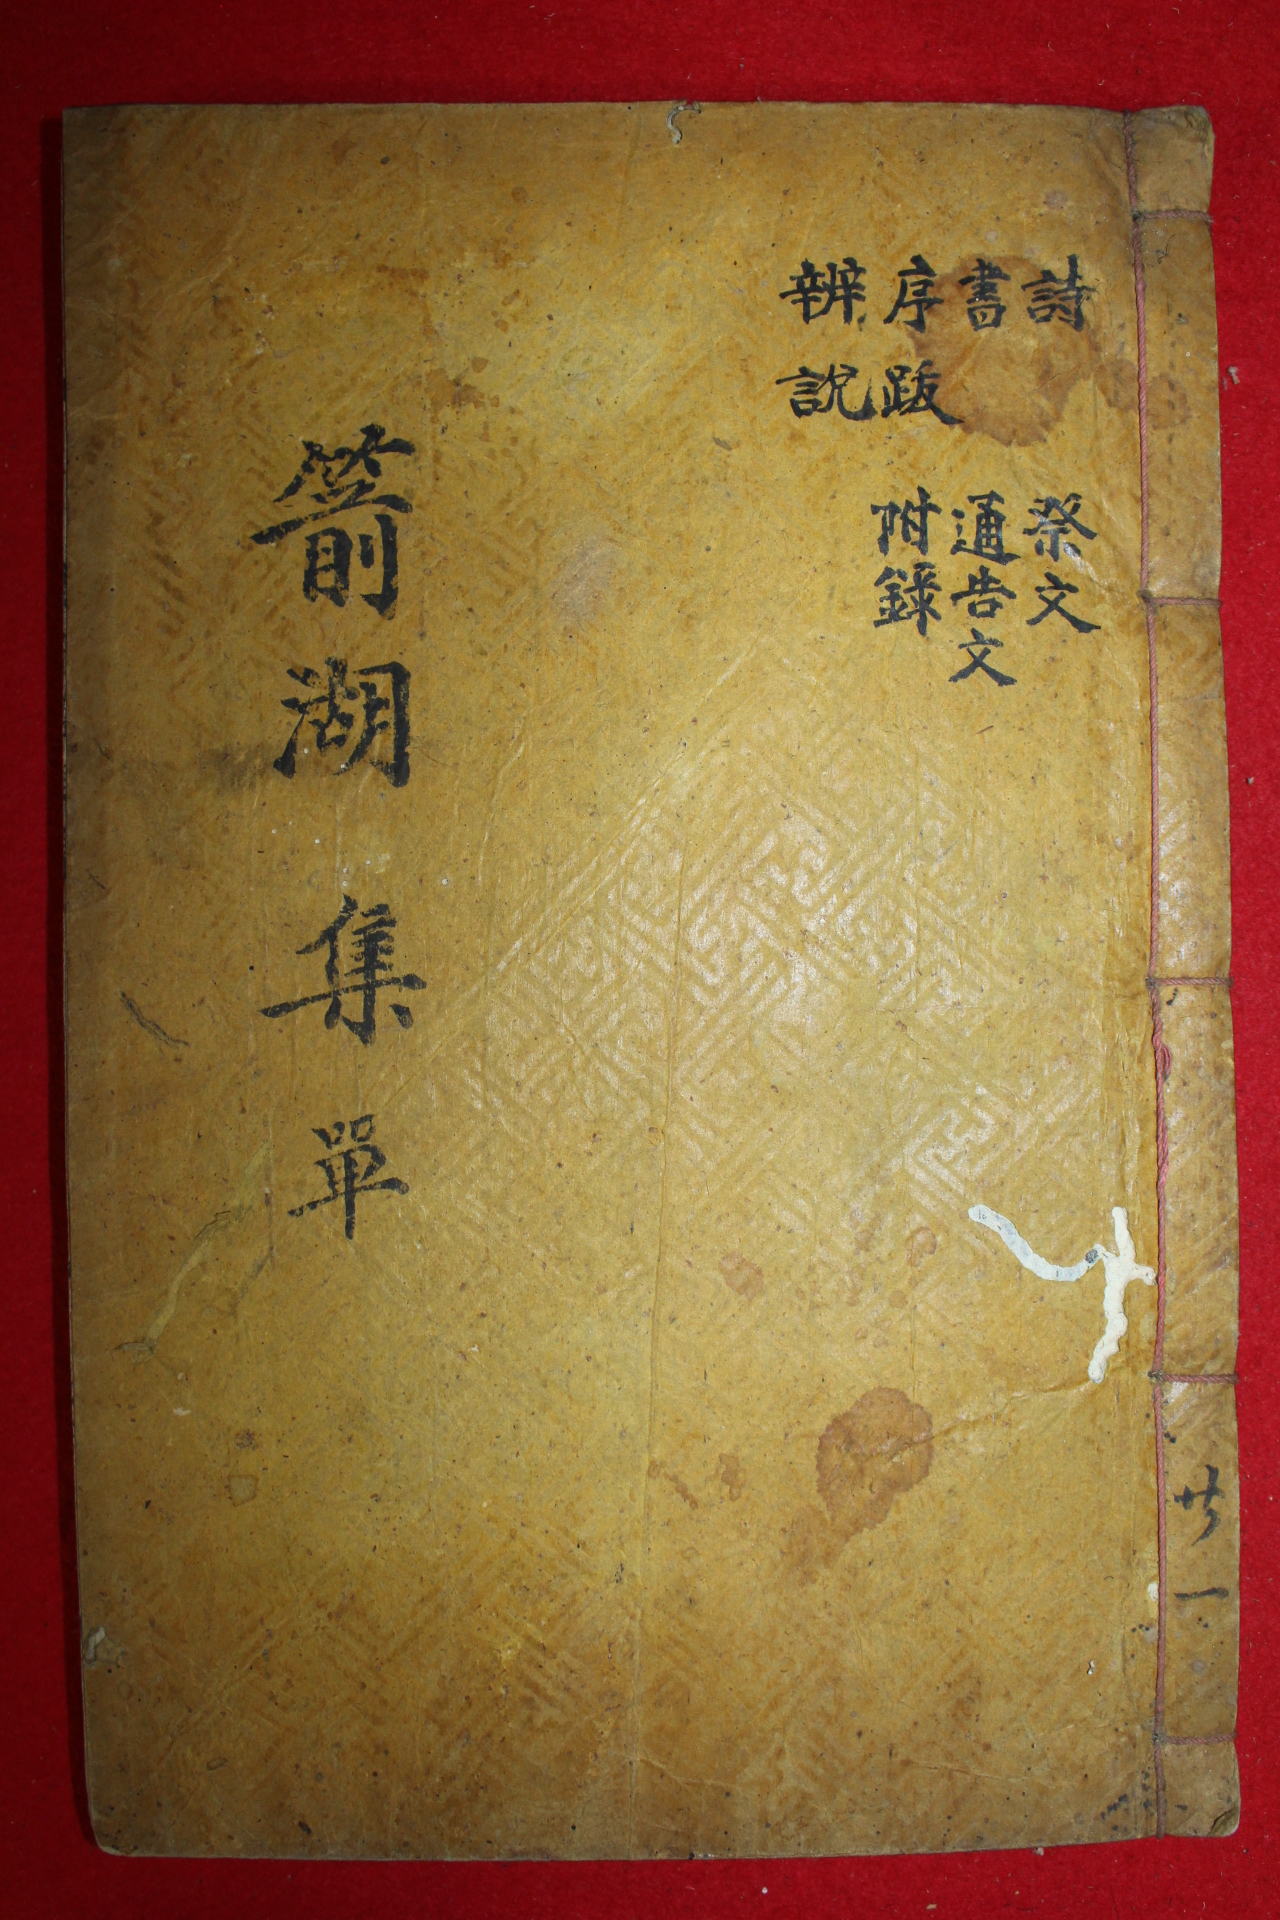 共一
詩
書
序跋
辨說
祭文
通告文
附錄
箭湖集 單